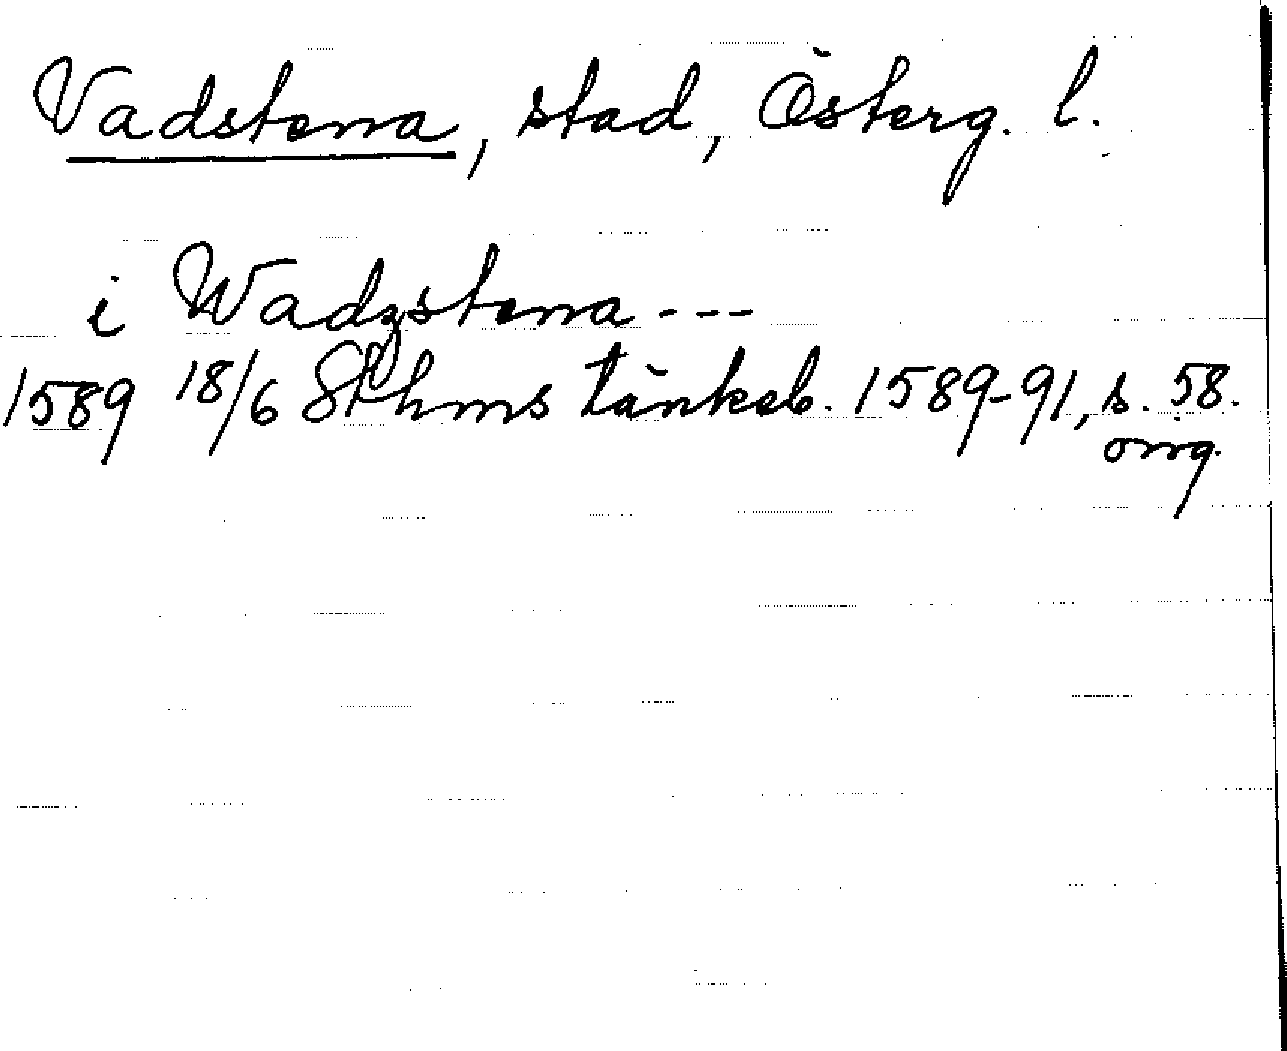 Vadstena, stad, Österg. l.
i Wadzstena ---
1589 18/6 Sthms tänkeb. 1589-91, s. 58.
orig.